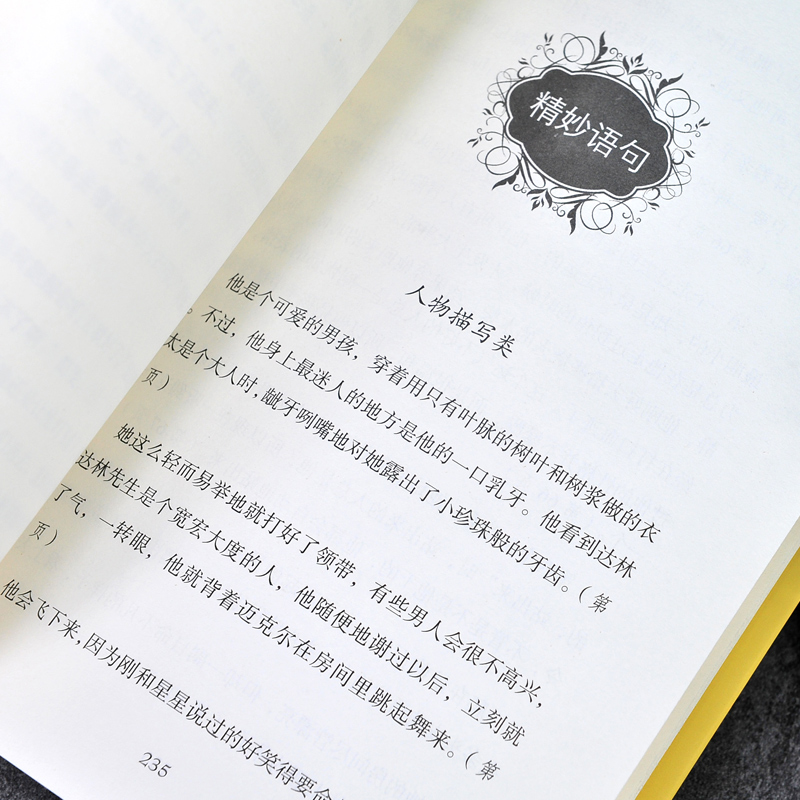 精妙语句
人物描写类
他是个可爱的男孩，穿着用只有叶脉的树叶和树浆做的衣
。不过，他身上最迷人的地方是他的一口乳牙。他看到达林
太是个大人时，龇牙咧嘴地对她露出了小珍珠般的牙齿。（第
页）
她这么轻而易举地就打好了领带，有些男人会很不高兴，
达林先生是个宽宏大度的人，他随便地谢过以后，立刻就
了气，一转眼，他就背着迈克尔在房间里跳起舞来。（第
页）
他会飞下来，因为刚和星星说过的好笑得要命
235